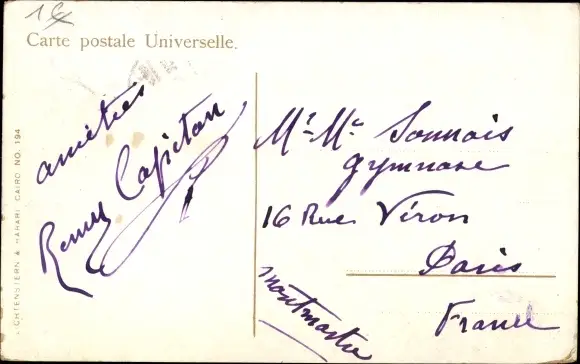 Carte postale Universelle.
amitiés
Capitan
LICHTENSTERN & HARARI, CAIRO NO. 194
Mr Me Sonnois
gymnase
16 Rue Véron
Paris
montmartre
France